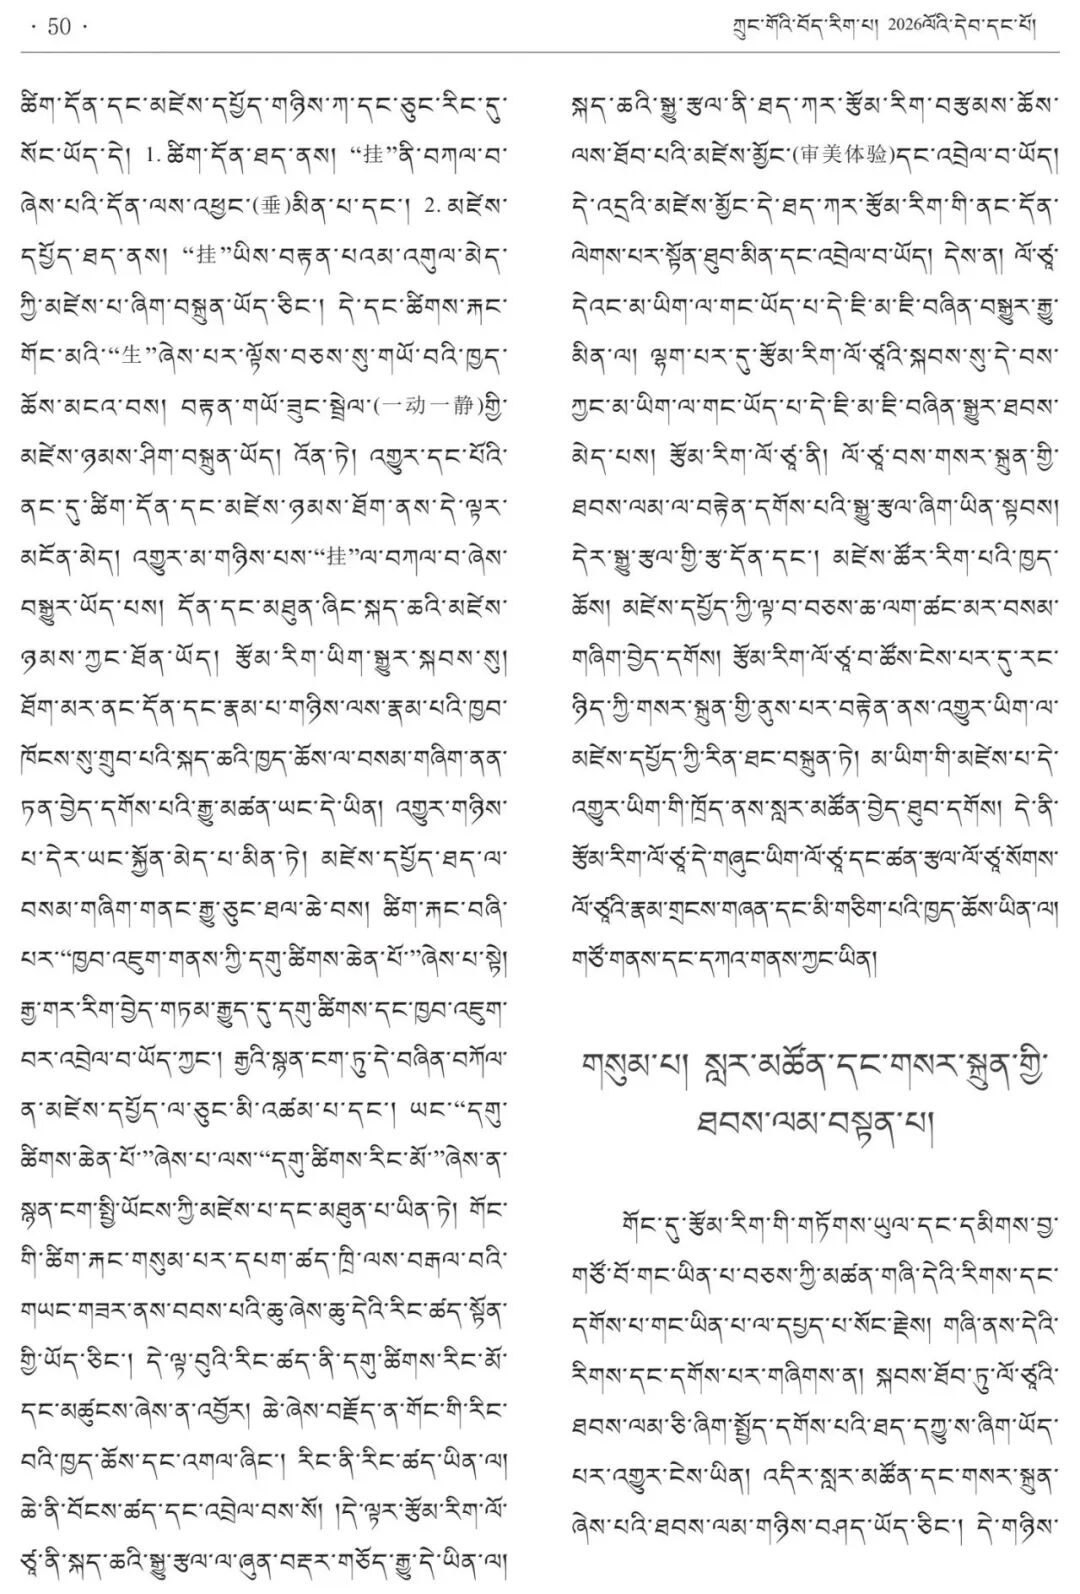 · 50 ·
ཀྲུང་གོའི་བོད་རིག་པ། 2026ལོའི་དེབ་དང་པོ།
ཚིག་དོན་དང་མཛེས་དཔྱོད་གཉིས་ཀ་དང་ཅུང་རིང་དུ་
སོང་ཡོད་དེ། 1. ཚིག་དོན་ཐད་ནས། “挂”ནི་བཀལ་བ་
ཞེས་པའི་དོན་ལས་འཕྱང་(垂)མིན་པ་དང་། 2. མཛེས་
དཔྱོད་ཐད་ནས། “挂”ཡིས་བརྟན་པའམ་འགུལ་མེད་
ཀྱི་མཛེས་པ་ཞིག་བསྐྲུན་ཡོད་ཅིང་། དེ་དང་ཚིགས་རྐང་
གོང་མའི་“生”ཞེས་པར་ལྟོས་བཅས་སུ་གཡོ་བའི་ཁྱད་
ཆོས་མངའ་བས། བརྟན་གཡོ་ཟུང་སྦྲེལ་(一动一静)གྱི་
མཛེས་ཉམས་ཤིག་བསྐྲུན་ཡོད། འོན་ཏེ། འགྱུར་དང་པོའི་
ནང་དུ་ཚིག་དོན་དང་མཛེས་ཉམས་ཐོག་ནས་དེ་ལྟར་
མངོན་མེད། འགྱུར་མ་གཉིས་པས་“挂”ལ་བཀལ་བ་ཞེས་
བསྒྱུར་ཡོད་པས། དོན་དང་མཐུན་ཞིང་སྐད་ཆའི་མཛེས་
ཉམས་ཀྱང་ཐོན་ཡོད། རྩོམ་རིག་ཡིག་སྒྱུར་སྐབས་སུ།
ཐོག་མར་ནང་དོན་དང་རྣམ་པ་གཉིས་ལས་རྣམ་པའི་ཁྱབ་
ཁོངས་སུ་གྲུབ་པའི་སྐད་ཆའི་ཁྱད་ཆོས་ལ་བསམ་གཞིག་ནན་
ཏན་བྱེད་དགོས་པའི་རྒྱུ་མཚན་ཡང་དེ་ཡིན། འགྱུར་གཉིས་
པ་དེར་ཡང་སྐྱོན་མེད་པ་མིན་ཏེ། མཛེས་དཔྱོད་ཐད་ལ་
བསམ་གཞིག་གནང་རྒྱུ་ཅུང་ཐལ་ཆེ་བས། ཚིག་རྐང་བཞི་
པར་“ཁྱབ་འཇུག་གནས་ཀྱི་དགུ་ཚིགས་ཆེན་པོ་”ཞེས་པ་སྟེ།
རྒྱ་གར་རིག་བྱེད་གཏམ་རྒྱུད་དུ་དགུ་ཚིགས་དང་ཁྱབ་འཇུག་
བར་འབྲེལ་བ་ཡོད་ཀྱང་། རྒྱའི་སྙན་ངག་ཏུ་དེ་བཞིན་བཀོལ་
ན་མཛེས་དཔྱོད་ལ་ཅུང་མི་འཚམ་པ་དང་། ཡང་“དགུ་
ཚིགས་ཆེན་པོ་”ཞེས་པ་ལས་“དགུ་ཚིགས་རིང་མོ་”ཞེས་ན་
སྙན་ངག་སྤྱི་ཡོངས་ཀྱི་མཛེས་པ་དང་མཐུན་པ་ཡིན་ཏེ། གོང་
གི་ཚིག་རྐང་གསུམ་པར་དཔག་ཚད་ཁྲི་ལས་བརྒལ་བའི་
གཡང་གཟར་ནས་བབས་པའི་ཆུ་ཞེས་ཆུ་དེའི་རིང་ཚད་སྟོན་
གྱི་ཡོད་ཅིང་། དེ་ལྟ་བུའི་རིང་ཚད་ནི་དགུ་ཚིགས་རིང་མོ་
དང་མཚུངས་ཞེས་ན་འབྱོར། ཆེ་ཞེས་བརྗོད་ན་གོང་གི་རིང་
བའི་ཁྱད་ཆོས་དང་འགལ་ཞིང་། རིང་ནི་རིང་ཚད་ཡིན་ལ།
ཆེ་ནི་བོངས་ཚད་དང་འབྲེལ་བས་སོ། །དེ་ལྟར་རྩོམ་རིག་ལོ་
ཙཱ་ནི་སྐད་ཆའི་སྒྱུ་རྩལ་ལ་ཞུན་བརྡར་གཅོད་རྒྱུ་དེ་ཡིན་ལ།
སྐད་ཆའི་སྒྱུ་རྩལ་ནི་ཐད་ཀར་རྩོམ་རིག་བརྩམས་ཆོས་
ལས་ཐོབ་པའི་མཛེས་མྱོང་(审美体验)དང་འབྲེལ་བ་ཡོད།
དེ་འདྲའི་མཛེས་མྱོང་དེ་ཐད་ཀར་རྩོམ་རིག་གི་ནང་དོན་
ལེགས་པར་སྟོན་ཐུབ་མིན་དང་འབྲེལ་བ་ཡོད། དེས་ན། ལོ་ཙཱ་
དེའང་མ་ཡིག་ལ་གང་ཡོད་པ་དེ་ཇི་མ་ཇི་བཞིན་བསྒྱུར་རྒྱུ་
མིན་ལ། ལྷག་པར་དུ་རྩོམ་རིག་ལོ་ཙཱའི་སྐབས་སུ་དེ་བས་
ཀྱང་མ་ཡིག་ལ་གང་ཡོད་པ་དེ་ཇི་མ་ཇི་བཞིན་སྒྱུར་ཐབས་
མེད་པས། རྩོམ་རིག་ལོ་ཙཱ་ནི། ལོ་ཙཱ་བས་གསར་སྐྲུན་གྱི་
ཐབས་ལམ་ལ་བརྟེན་དགོས་པའི་སྒྱུ་རྩལ་ཞིག་ཡིན་སྟབས།
དེར་སྒྱུ་རྩལ་གྱི་རྩ་དོན་དང་། མཛེས་ཚོར་རིག་པའི་ཁྱད་
ཆོས། མཛེས་དཔྱོད་ཀྱི་ལྟ་བ་བཅས་ཆ་ལག་ཚང་མར་བསམ་
གཞིག་བྱེད་དགོས། རྩོམ་རིག་ལོ་ཙཱ་བ་ཚོས་ངེས་པར་དུ་རང་
ཉིད་ཀྱི་གསར་སྐྲུན་གྱི་ནུས་པར་བརྟེན་ནས་འགྱུར་ཡིག་ལ་
མཛེས་དཔྱོད་ཀྱི་རིན་ཐང་བསྐྲུན་ཏེ། མ་ཡིག་གི་མཛེས་པ་དེ་
འགྱུར་ཡིག་གི་ཁྲོད་ནས་སླར་མཚོན་བྱེད་ཐུབ་དགོས། དེ་ནི་
རྩོམ་རིག་ལོ་ཙཱ་དེ་གཞུང་ཡིག་ལོ་ཙཱ་དང་ཚན་རྩལ་ལོ་ཙཱ་སོགས་
ལོ་ཙཱའི་རྣམ་གྲངས་གཞན་དང་མི་གཅིག་པའི་ཁྱད་ཆོས་ཡིན་ལ།
གཙོ་གནས་དང་དཀའ་གནས་ཀྱང་ཡིན།
གསུམ་པ། སླར་མཚོན་དང་གསར་སྐྲུན་གྱི་
ཐབས་ལམ་བསྟན་པ།
གོང་དུ་རྩོམ་རིག་གི་གཏོགས་ཡུལ་དང་དམིགས་བྱ་
གཙོ་བོ་གང་ཡིན་པ་བཅས་ཀྱི་མཚན་གཞི་དེའི་རིགས་དང་
དགོས་པ་གང་ཡིན་པ་ལ་དཔྱད་པ་སོང་རྗེས། གཞི་ནས་དེའི་
རིགས་དང་དགོས་པར་གཞིགས་ན། སྐབས་ཐོབ་ཏུ་ལོ་ཙཱའི་
ཐབས་ལམ་ཅི་ཞིག་སྤྱོད་དགོས་པའི་ཐད་དཀྱུས་ཞིག་ཡོད་
པར་འགྱུར་ངེས་ཡིན། འདིར་སླར་མཚོན་དང་གསར་སྐྲུན་
ཞེས་པའི་ཐབས་ལམ་གཉིས་བཤད་ཡོད་ཅིང་། དེ་གཉིས་